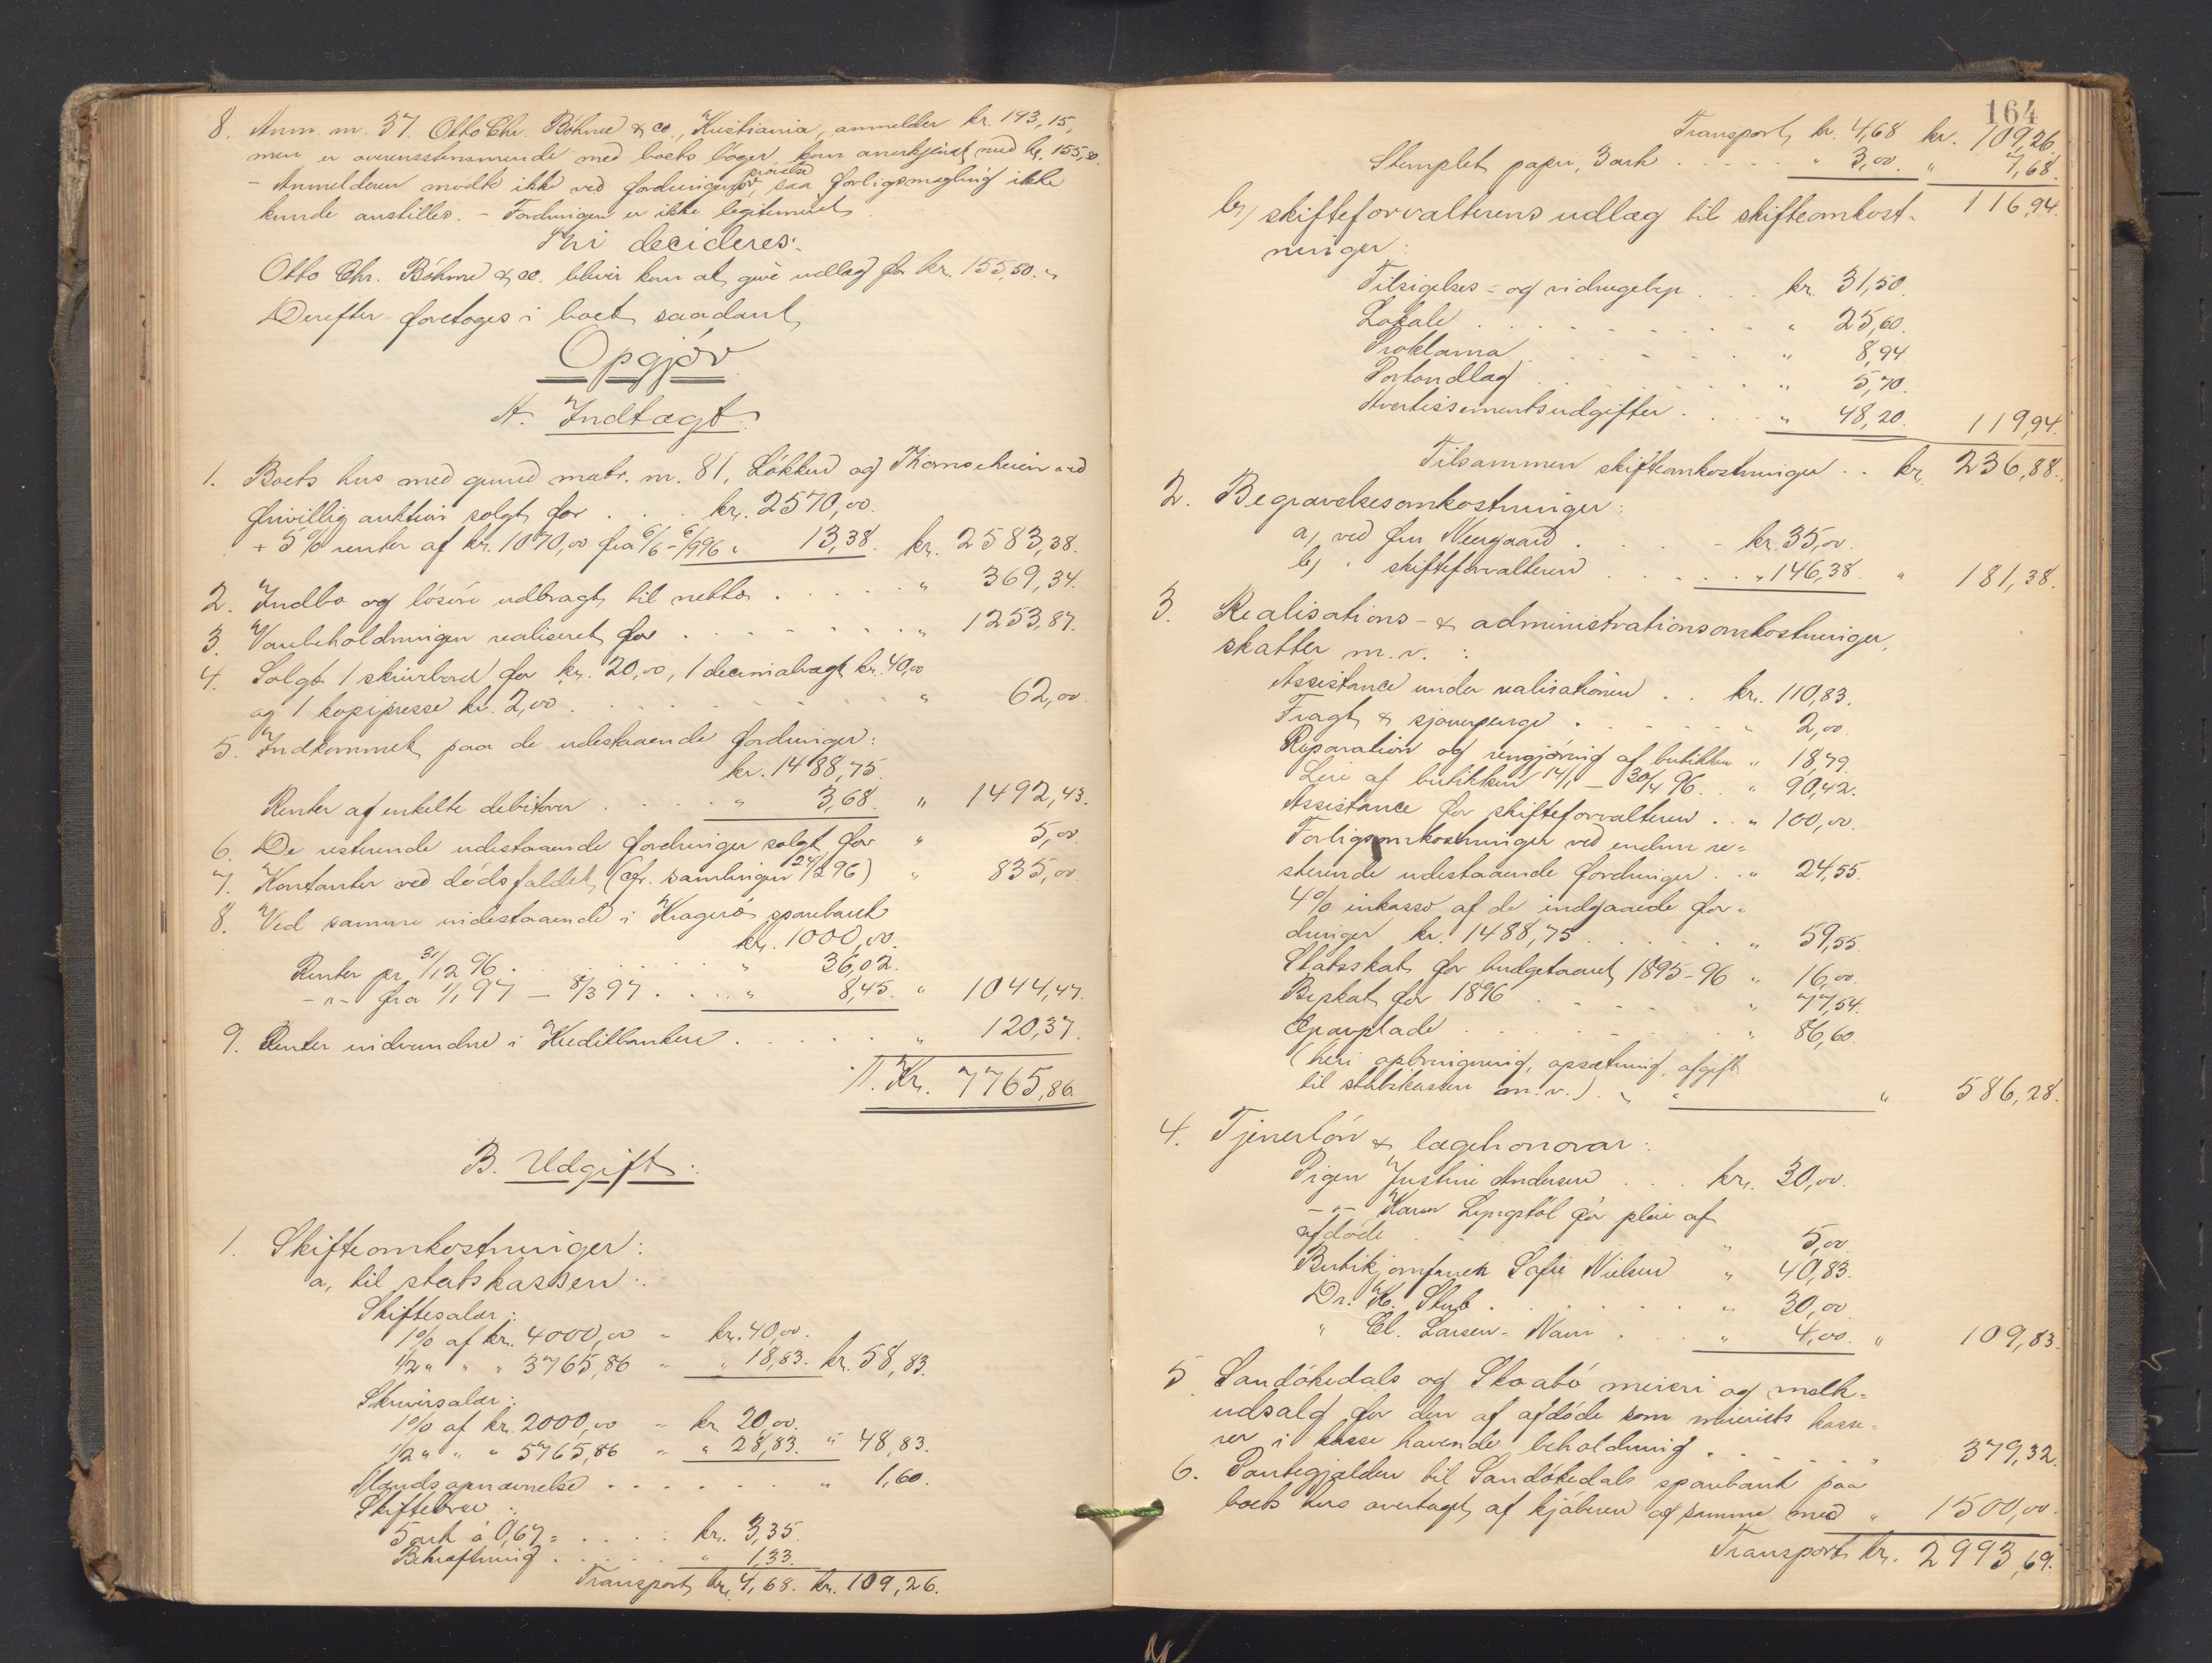 8. Anm. nr. 37. Otto Chr. Böhme & co., Kristiania, anmelder kr. 193,15,
men er overensstemmende med boets bøger kun anerkjendt med kr. 155,50.
- Anmelderen mødte ikke ved fordringernes prøvelse, saa forligsmægling ikke
kunde anstilles. - Fordringen er ikke legitimeret
Thi decideres:
Otto Chr. Böhme & co. bliver kun at give udlæg for kr. 155,50.
Derefter foretoges i boet saadant
Opgjør
A. Indtægt:
1. Boets hus med grund matr. nr. 81, Løkken og Thomesheien ved
frivillig auktion solgt for . . . kr. 2570,00.
+ 5% renter af kr. 1070,00 fra 6/6 - 6/9 96 " 13,38. kr. 2583,38.
2. Indbo og løsøre udbragt til netto . . . . . " 369,34.
3. Varebeholdningen realiseret for . . . . . . . " 1253,87.
4. Solgt 1 skrivebord for kr. 20,00, 1 decimalvægt kr. 40,00
og 1 kopipresse kr. 2,00 . . . . . . . . " 62,00
5. Indkommet paa de udestaaende fordringer:
kr. 1488,75.
Renter af enkelte debitorer . . . . " 3,68. " 1492,43.
6. De resterende udestaaende fordringer solgt for " 5,00.
7. Kontanter ved dødsfaldet (cfr. samlingen 24/2 96) " 835,00.
8. Ved samme indestaaende i Kragerø sparebank
kr. 1000,00.
Renter pr. 31/12 96 . . . . . . " 36,02.
-"- fra 1/1 97 - 8/3 97 . . . " 8,45. " 1044,47.
9. Renter indvundne i Kreditbanken . . . . . " 120,37.
T. Kr. 7765,86.
B. Udgift:
1. Skifteomkostninger:
a, til statskassen:
Skiftesalær:
1% af kr. 4000,00 = kr. 40,00.
1/2 " " " 3765,86 = " 18,83. kr. 58,83.
Skriversalær:
1% af kr. 2000,00 = kr. 20,00.
1/2 " " " 5765,86 = " 28,83. " 48,83.
Mandsopnævnelse . . . . . . " 1,60.
Skiftebrev:
5 ark à 0,67 = . . . . kr. 3,35.
Bekræftning . . . . . " 1,33.
Transport kr. 4,68. kr. 109,26.
164
Transport kr. 4,68 kr. 109,26.
Stemplet papir, 3 ark . . . . . " 3,00. " 7,68.
116,94.
b, skifteforvalterens udlæg til skifteomkost-
ninger:
Tilsigelses- og vidnegebyr . . . kr. 31,50.
Lokale . . . . . . . . " 25,60.
Proklama . . . . . . . " 8,94.
Portoudlæg . . . . . . . " 5,70.
Avertissementsudgifter . . . . " 48,20. 119,94.
Tilsammen skifteomkostninger . . kr. 236,88.
2. Begravelsesomkostninger:
a, ved fru Neergaard . . . . . kr. 35,00.
b, " skifteforvalteren . . . . . " 146,38. " 181,38.
3. Realisations- & administrationsomkostninger,
skatter m. v. :
Assistance under realisationen . . kr. 110,83.
Fragt & sjouerpenge . . . . . . " 2,00.
Reparation og rengjøring af butikken " 18,79.
Leie af butikken 14/1 - 30/4 96. . " 90,42.
Assistance for skifteforvalteren . . " 100,00.
Forligsomkostninger ved endnu re-
sterende udestaaende fordringer . . " 24,55.
4% inkasso af de indgaaede for-
dringer kr. 1488,75 . . . . . " 59,55.
Statsskat for budgetaaret 1895-96 " 16,00.
Byskat for 1896 . . . . . . . " 77,54.
Gravplade . . . . . . . . " 86,60.
(heri opbringning, opsætning, afgift
til statskassen m. v.) " 586,28.
4. Tjenerløn & lægehonorar:
Pigen Justine Andersen . . . kr. 30,00.
-"- Karen for pleie af
afdøde . . . . . . . . " 5,00.
Butikjomfruen Sofie Nielsen " 40,83.
Dr. K. Stub . . . . . . . " 30,00.
" El. Larsen-Naur . . . " 4,00. " 109,83.
5. Sandøkedals og Skaabø meieri og melk-
udsalg for den af afdøde som meieriets kasse-
rer i kasse havende beholdning . . . " 379,32.
6. Pantegjælden til Sandøkedals sparebank paa
boets hus overtaget af kjøberen af samme med " 1500,00.
Transport kr. 2993,69.